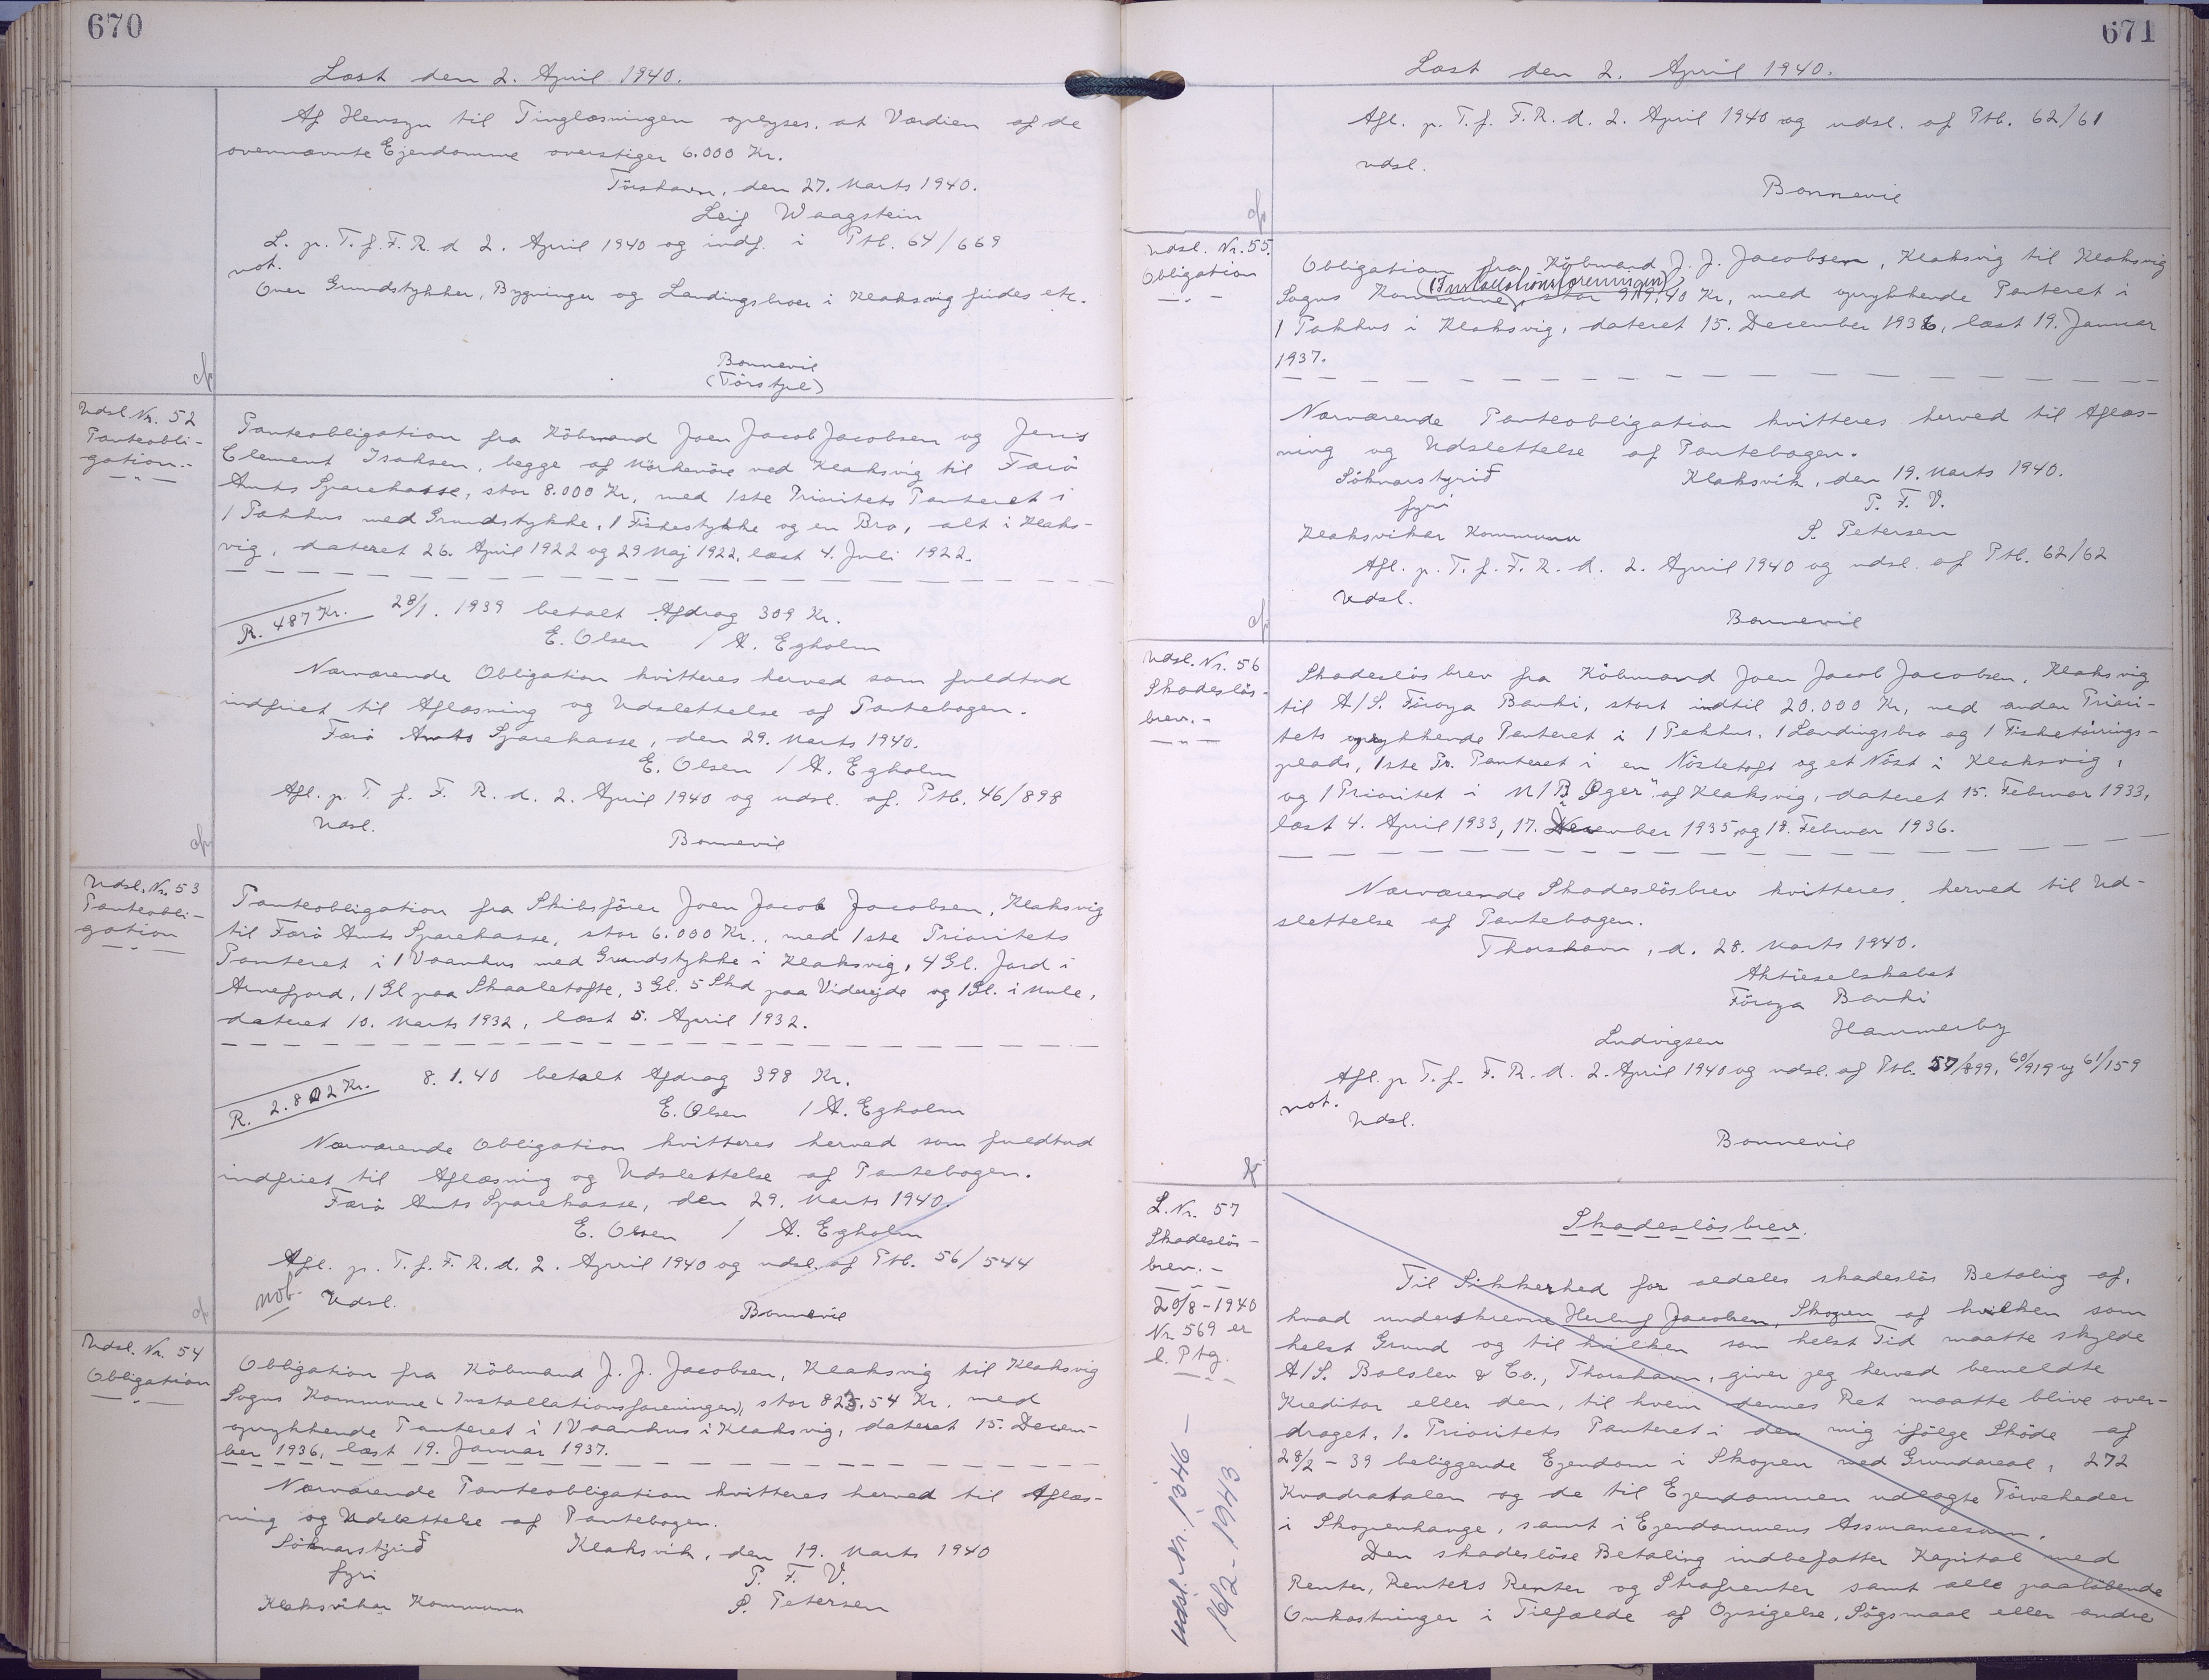 670
Læst den 2. April 1940.
Af Hensyn til Tinglæsningen oplyses, at Værdien af de
ovennævnte Ejendomme overstiger 6.000 Kr.
Tórshavn, den 27. Marts 1940.
Leif Waagstein
L. p. T. f. F. R. d 2. April 1940 og indf. i Ptb. 64/669
not.
Over Grundstykker, Bygninger og Landingsbroer i Klaksvig findes etc.
Bonnevie
Udsl. Nr. 52
Panteobli-
gation.-
Panteobligation fra Köbmand Joen Jacob Jacobsen og Jens
Clement Isaksen, begge af Mörkeröre ved Klaksvig til Færö
Amts Sparekasse, stor 8.000 Kr. med 1ste Prioritets Panteret i
1 Pakhus med Grundstykke, 1 Fiskestykke og en Bro, alt i Klaks-
vig, dateret 26. April 1922 og 29 Maj 1922, læst 4. Juli 1922.
R. 487 Kr. 28/1. 1939 betalt Afdrag 309 Kr.
E. Olsen / A. Egholm
Nærværende Obligation kvitteres herved som fuldtud
indfriet til Aflæsning og Udslettelse af Pantebogen.
Færö Amts Sparekasse, den 29. Marts 1940.
E. Olsen / A. Egholm
Afl. p. T. f. F. R. d. 2. April 1940 og udsl. af. Ptb. 46/898
Udsl.
Bonnevie
Udsl. Nr. 53
Panteobli-
gation
Panteobligation fra Skibsförer Joen Jacob Jacobsen, Klaksvig
til Færö Amts Sparekasse, stor 6.000 Kr., med 1ste Prioritets
Panteret i 1 Vaanhus med Grundstykke i Klaksvig, 4 Gl. Jord i
Arnefjord, 1 Gl paa Skaaletofte, 3 Gl. 5 Skd paa Viderejde og 1 Gl. i Mule,
dateret 10. Marts 1932, læst 5. April 1932.
R. 2.802 Kr. 8. 1. 40 betalt Afdrag 398 Kr.
E. Olsen / A. Egholm
Nærværende Obligation kvitteres herved som fuldtud
indfriet til Aflæsning og Udslettelse af Pantebogen.
Færö Amts Sparekasse, den 29. Marts 1940.
E. Olsen / A. Egholm
Afl. p. T. f. F. R. d. 2. April 1940 og udsl. af Ptb. 56/544
not. Udsl.
Bonnevie
Udsl. Nr. 54
Obligation
Obligation fra Köbmand J. J. Jacobsen, Klaksvig til Klaksvig
Sogns Kommune (Installationsforeningen), stor 825.54 Kr. med
oprykkende Panteret i 1 Vaanhus i Klaksvig, dateret 15. Decem-
ber 1936, læst 19. Januar 1937.
Nærværende Panteobligation kvitteres herved til Aflæs-
ning og Udslettelse af Pantebogen.
Sóknarstýrið Klaksvik, den 19. Marts 1940
fyri P. F. V.
Klaksvikar Kommunu S. Petersen
671
Læst den 2. April 1940.
Afl. p. T. f. F. R. d. 2. April 1940 og udsl. af Ptb. 62/61
udsl.
Bonnevie
Udsl. Nr. 55.
Obligation
Obligation fra Köbmand J. J. Jacobsen, Klaksvig til Klaksvig
(Installationsforeningen)
Sogns Kommune, stor 919.40 Kr, med oprykkende Panteret i
1 Pakhus i Klaksvig, dateret 15. December 1936, læst 19. Januar
1937.
Nærværende Panteobligation kvitteres herved til Aflæs-
ning og Udslettelse af Pantebogen.
Sóknarstýrið Klaksvik, den 19. Marts 1940.
fyri P. F. V.
Klaksvikar Kommunu S. Petersen
Afl. p. T. f. F. R. d. 2. April 1940 og udsl. af Ptb. 62/62
Udsl.
Bonnevie
Udsl. Nr. 56
Skadeslös-
brev.-
Skadeslösbrev fra Köbmand Joen Jacob Jacobsen, Klaksvig
til A/S. Föroya Banki, stort indtil 20.000 Kr, med anden Priori-
tets oprykkende Panteret i 1 Pakhus, 1 Landingsbro og 1 Fisketörrings-
plads, 1ste Pr. Panteret i en Nöstetoft og et Nöst i Klaksvig,
og 1 Prioritet i M/B "Øger" af Klaksvig, dateret 15. Februar 1933,
læst 4. April 1933, 17. December 1935 og 18. Februar 1936.
Nærværende Skadeslösbrev kvitteres herved til Ud-
slettelse af Pantebogen.
Thorshavn, d. 28. Marts 1940.
Aktieselskabet
Föroya Banki
Ludvigsen Hammerby
Afl. p. T. f. F. R. d. 2. April 1940 og udsl. af Ptb. 57/899, 60/919 og 61/159
not.
Udsl.
Bonnevie
L. Nr. 57
Skadeslös-
brev.-
20/8-1940
Nr 569 er
l. Ptg.
Udsl. Nr. 1346 -
16/2-1943
Skadeslösbrev.
Til Sikkerhed for aldeles skadeslös Betaling af,
hvad underskrevne Herluf Jacobsen, Skopen af hvilken som
helst Grund og til hvilken som helst Tid maatte skylde
A/S. Balslev & Co., Thorshavn, giver jeg herved bemeldte
Kreditor eller den, til hvem dennes Ret maatte blive over-
draget, 1. Prioritets Panteret i den mig ifölge Sköde af
28/2 - 39 beliggende Ejendom i Skopen med Grundareal, 272
Kvadratalen og de til Ejendommen udlagte Törveheder
i Skopenhauge, samt i Ejendommens Assurancesum.
Den skadeslöse Betaling indbefatter Kapital med
Renter, Renters Renter og Strafrenter samt alle paalöbende
Omkostninger i Tilfælde af Opsigelse, Sögsmaal eller andre